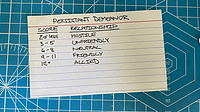 PERSISTANT DEMEANOR
SCORE RELATIONSHIP
2 OR LESS HOSTILE
3-5 UNFRIENDLY
6-8 NEUTRAL
9-11 FRIENDLY
12+ ALLIED